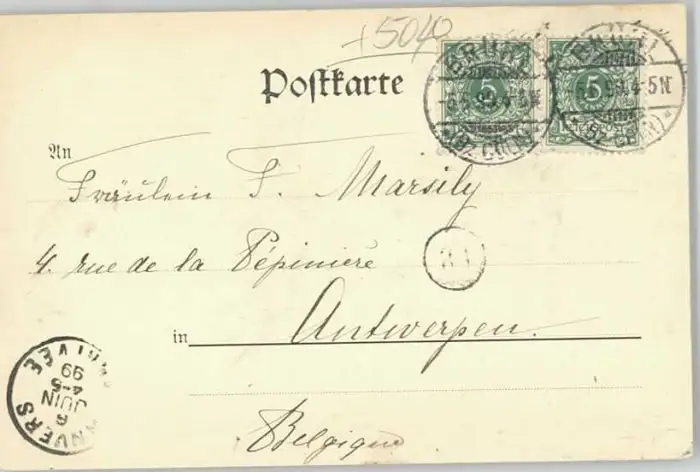 +5040
Postkarte
BRÜHL
5
(BZ. CÖLN)
BRÜHL
5
(BZ. CÖLN)
An
Fräulein F. Marsily
4. rue de la Pépinière
in Antwerpen.
Belgique
ANVERS
6
JUIN
4-5
99
ARRIVEE